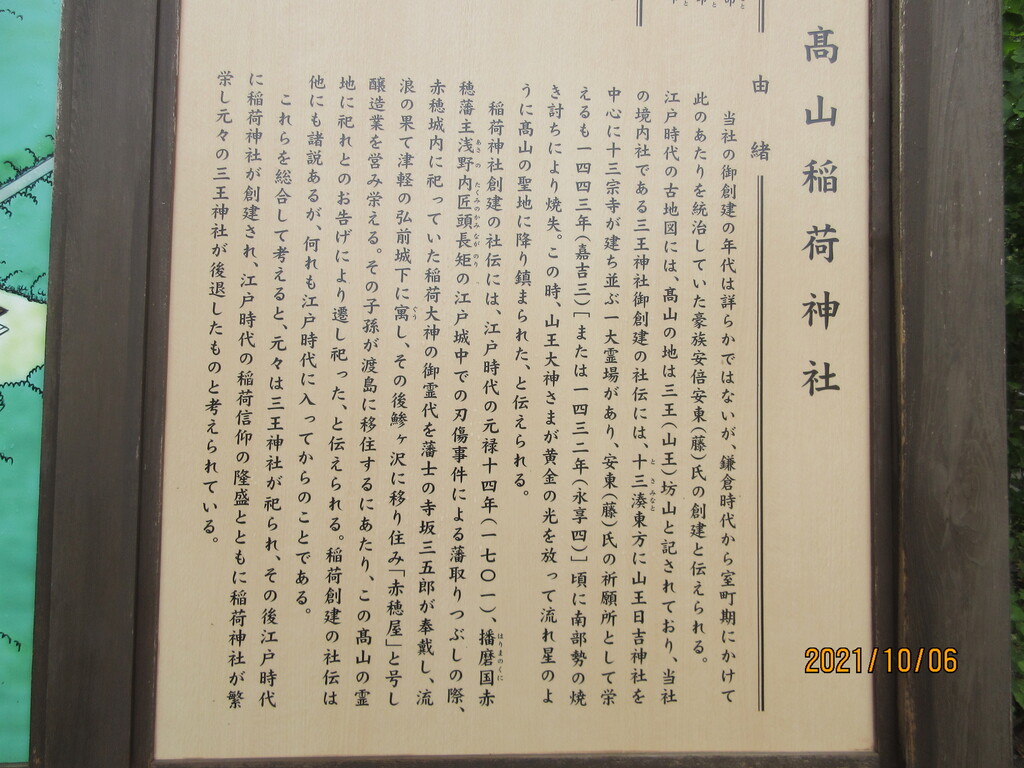 髙山稲荷神社
由緒
当社の御創建の年代は詳らかではないが、鎌倉時代から室町期にかけて
此のあたりを統治していた豪族安倍安東(藤)氏の創建と伝えられる。
江戸時代の古地図には、髙山の地は三王(山王)坊山と記されており、当社
の境内社である三王神社御創建の社伝には、十三湊東方に山王日吉神社を
とさみなと
中心に十三宗寺が建ち並ぶ一大霊場があり、安東(藤)氏の祈願所として栄
えるも一四四三年(嘉吉三)[または一四三二年(永享四)]頃に南部勢の焼
き討ちにより焼失。この時、山王大神さまが黄金の光を放って流れ星のよ
うに髙山の聖地に降り鎮まられた、と伝えられる。
稲荷神社創建の社伝には、江戸時代の元禄十四年(一七〇一)、播磨国赤
はりまのくに
穂藩主浅野内匠頭長矩の江戸城中での刃傷事件による藩取りつぶしの際、
あさのたくみのかみながのり
赤穂城内に祀っていた稲荷大神の御霊代を藩士の寺坂三五郎が奉戴し、流
浪の果て津軽の弘前城下に寓し、その後鰺ヶ沢に移り住み「赤穂屋」と号し
ぐう
醸造業を営み栄える。その子孫が渡島に移住するにあたり、この髙山の霊
地に祀れとのお告げにより遷し祀った、と伝えられる。稲荷創建の社伝は
他にも諸説あるが、何れも江戸時代に入ってからのことである。
これらを総合して考えると、元々は三王神社が祀られ、その後江戸時代
に稲荷神社が創建され、江戸時代の稲荷信仰の隆盛とともに稲荷神社が繁
栄し元々の三王神社が後退したものと考えられている。
2021/10/06